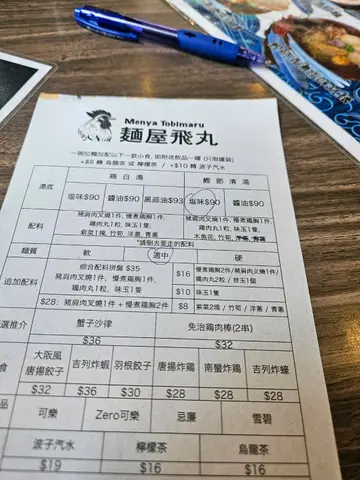 Menya Tobimaru
麵屋飛丸
一碗拉麵加配以下一款小食, 即附送飲品一罐 (只限罐裝)
+$5 轉 烏龍茶 或 檸檬茶 / +$10 轉 波子汽水
湯底 鶏白湯 鰹節清湯
塩味$90 醬油$90 黑蒜油$93 塩味$90 醬油$90
配料 豬肩肉叉燒1件, 慢煮鶏胸1件, 豬肩肉叉燒1件, 慢煮鶏胸1件,
鶏肉丸1粒, 味玉1隻, 鶏肉丸2粒, 味玉1隻
紫菜1塊, 竹筍, 洋蔥, 青蔥 木魚花, 竹筍, 洋蔥, 青蔥
*請刪去走的配料
麵質 軟 適中 硬
追加配料 綜合配料拼盤 $35 $16 慢煮鶏胸2件/豬肩肉叉燒1件/
豬肩肉叉燒1件, 慢煮鶏胸1件, 鶏肉丸2粒 / 替玉1個
鶏肉丸1粒, 味玉1隻 $10 味玉1隻
$28: 豬肩肉叉燒1件 + 慢煮鶏胸2件 $8 紫菜2塊 / 竹筍 / 洋蔥 / 青蔥
選推介 蟹子沙律 免治鶏肉棒(2串)
$36 $32
食 大阪風唐揚餃子 吉列炸蝦 羽根餃子 唐揚炸鶏 南蠻炸鶏 吉列炸蠔
$32 $36 $30 $28 $28 $28
品 可樂 Zero可樂 忌廉 雪碧
波子汽水 檸檬茶 烏龍茶
$19 $16 $16